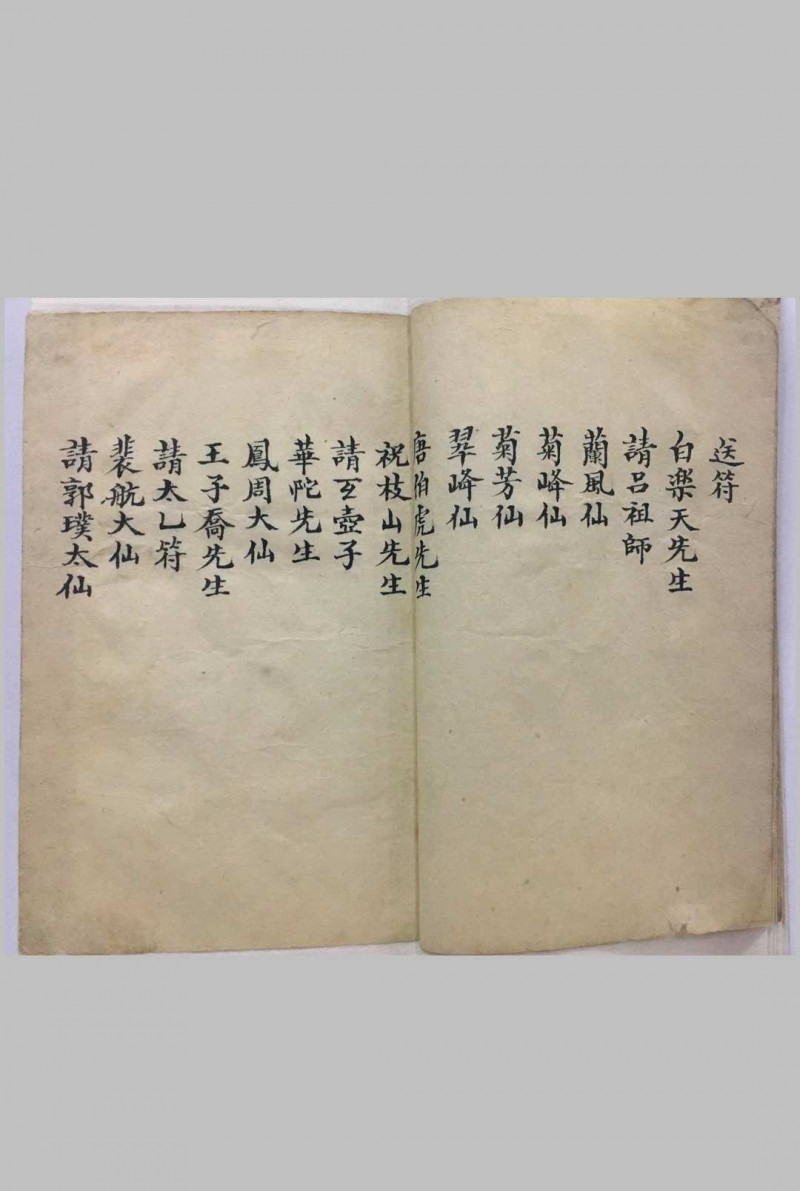 送符
白楽天先生
請吕祖師
蘭風仙
菊峰仙
菊芳仙
翠峰仙
唐伯虎先生
祝枝山先生
請㸦壺子
華陀先生
鳳周大仙
王子喬先生
請太乚符
裴航大仙
請郭璞太仙